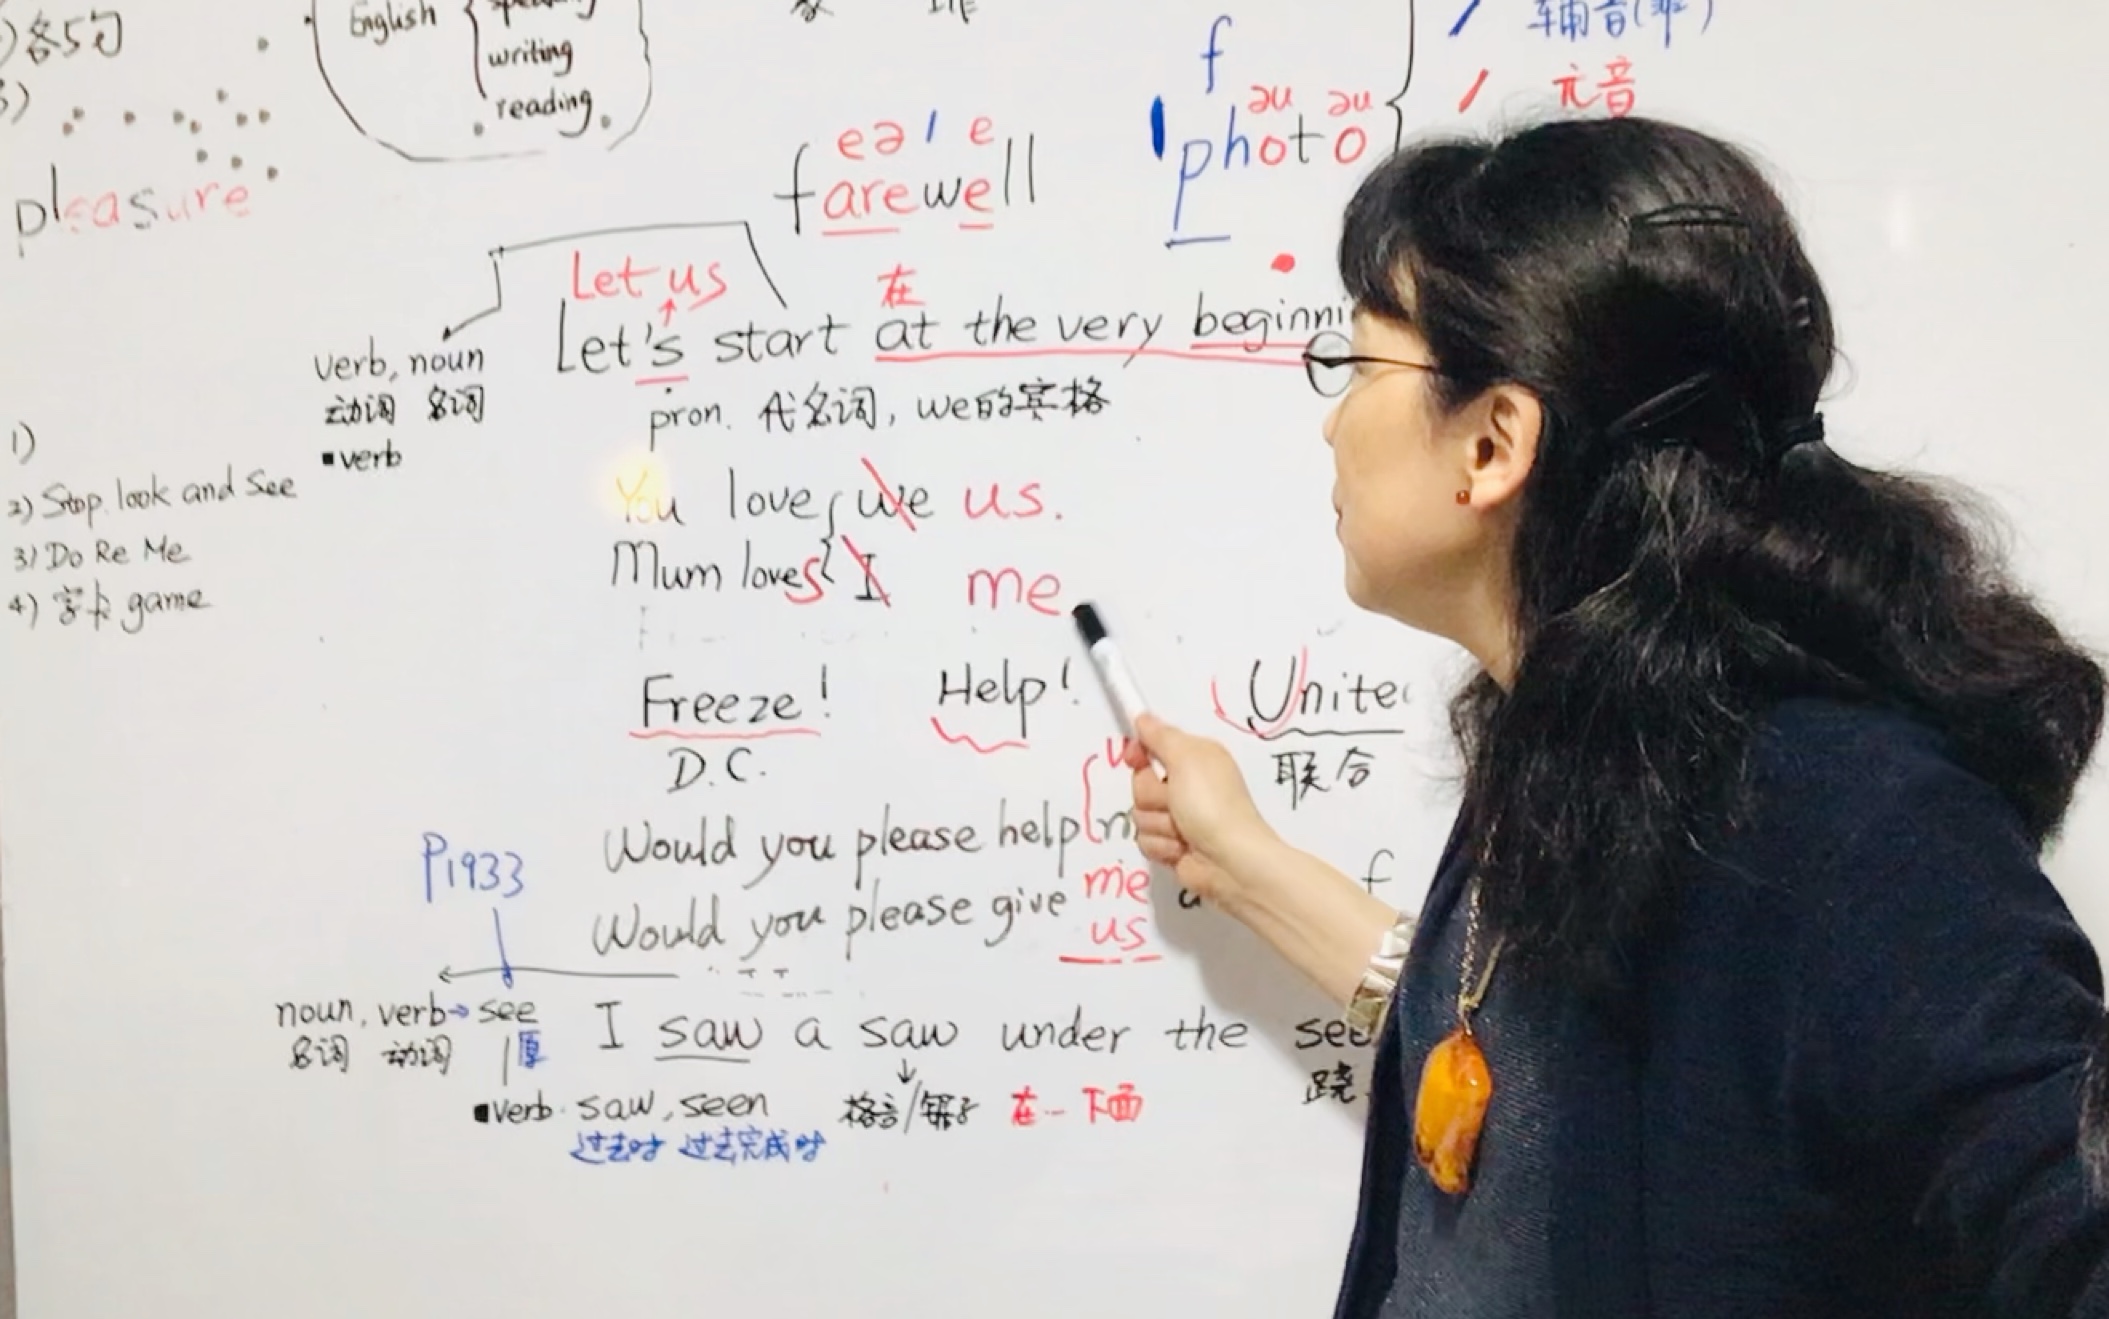 各5句
English { speaking
writing
reading
pleasure
eə ' e
farewell
f
əu əu
photo
/ 辅音
/ 元音
Let us
在
Let's start at the very beginni
verb, noun
动词 名词
▪verb
pron. 代名词, we的宾格
1)
2) Stop look and See
3) Do Re Me
4) 字卡 game
You love we us.
Mum loves I me
Freeze! Help! Unite
D.C.
联合
Would you please help
me
Would you please give
us
P1933
noun, verb → see
名词 动词
原
I saw a saw under the see
▪verb. saw, seen
过去时 过去完成时
格言/锯子
在--下面
跷